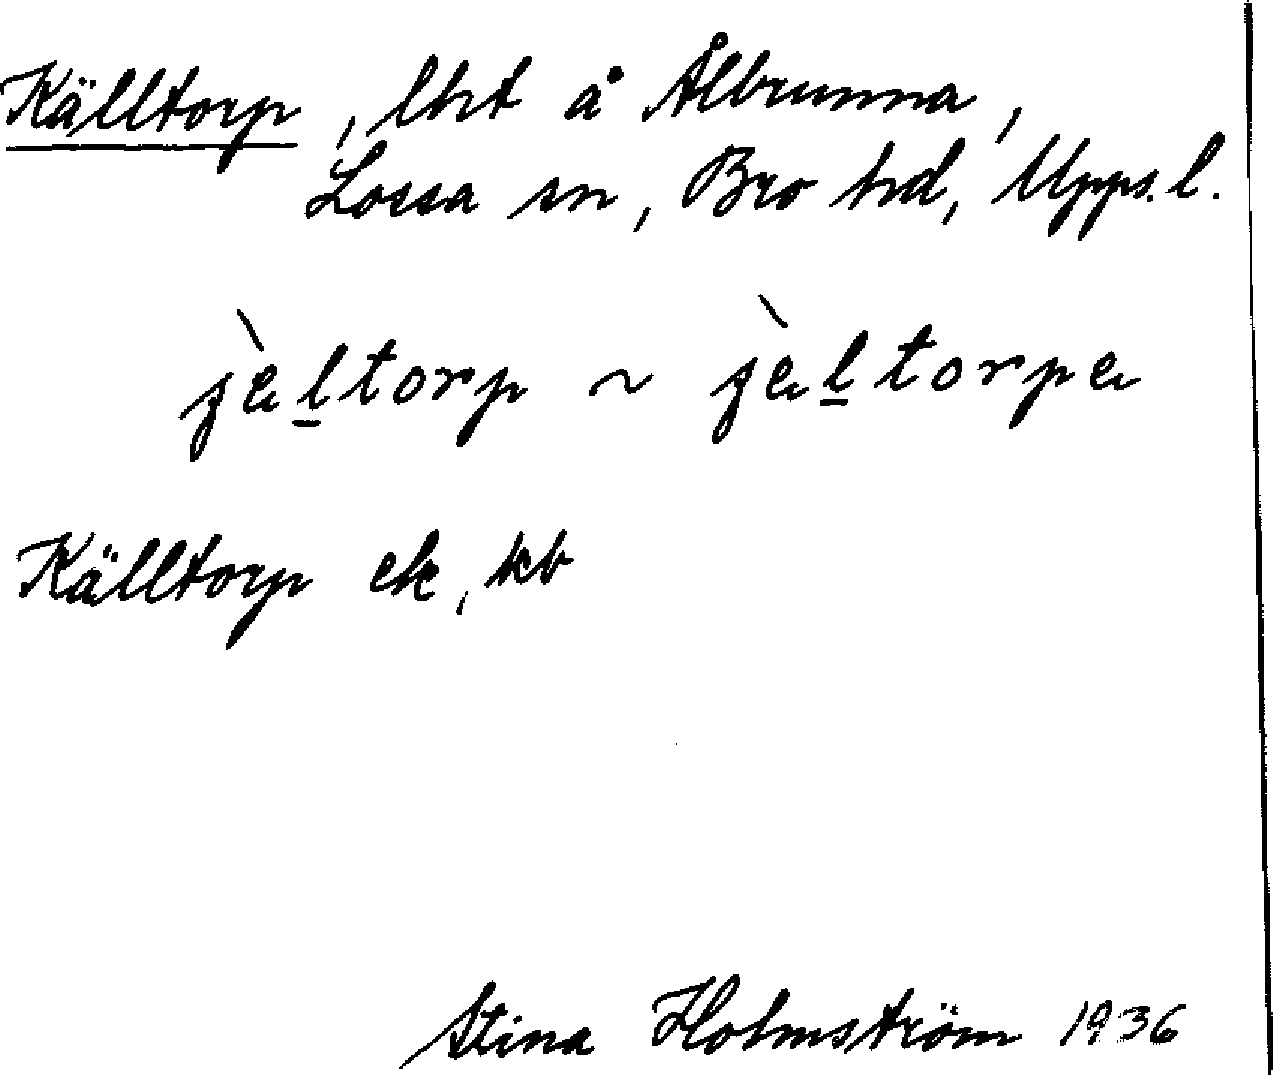 Källtorp, lht å Ålbrunna,
Lossa sn, Bro hd, Upps. l.
jèltorp ~ jèltorpa
Källtorp ek, kb
Stina Holmström 1936